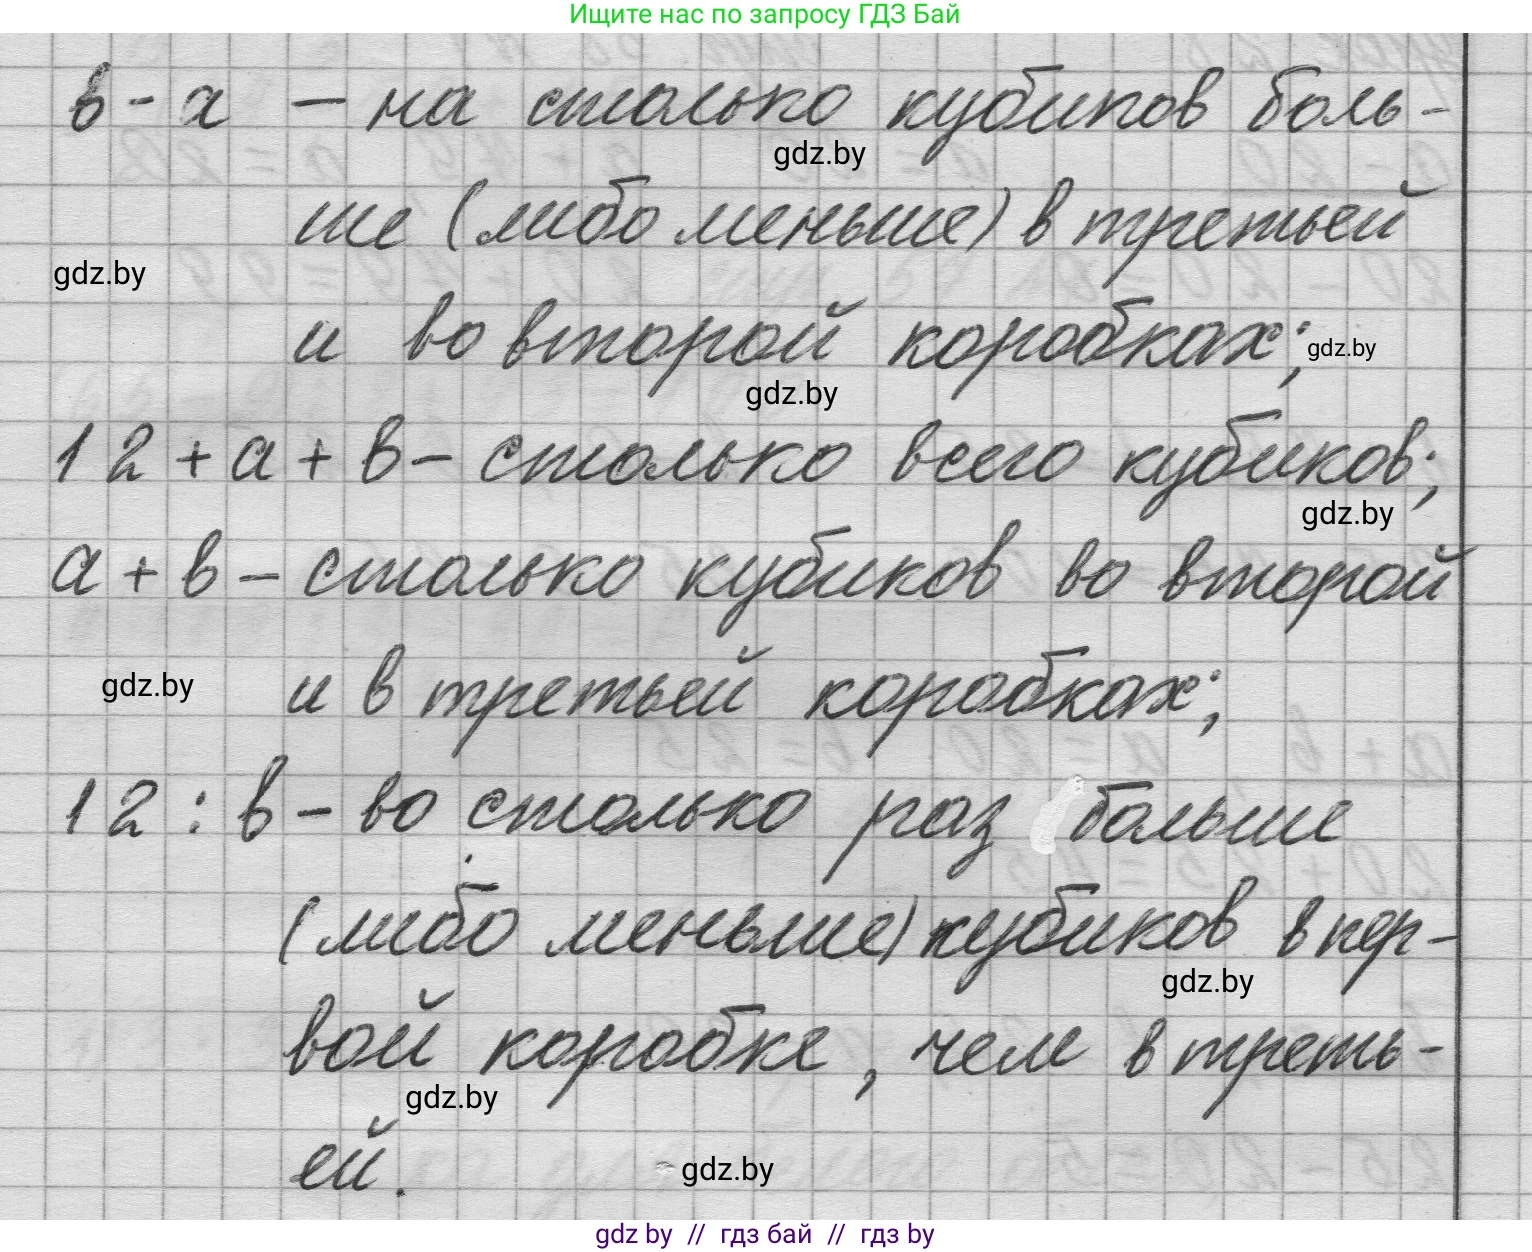 Ищите нас по запросу ГДЗ Бай
в - а – на столько кубиков боль-
gdz.by
ше (либо меньше) в третьей
gdz.by
и во второй коробках;
gdz.by
gdz.by
12 + а + в – столько всего кубиков;
gdz.by
а + в – столько кубиков во второй
gdz.by
и в третьей коробках;
12 : в – во столько раз больше
(либо меньше) кубиков в пер-
gdz.by
вой коробке, чем в треть-
gdz.by
ей.
gdz.by
gdz by // гдз бай // гдз by